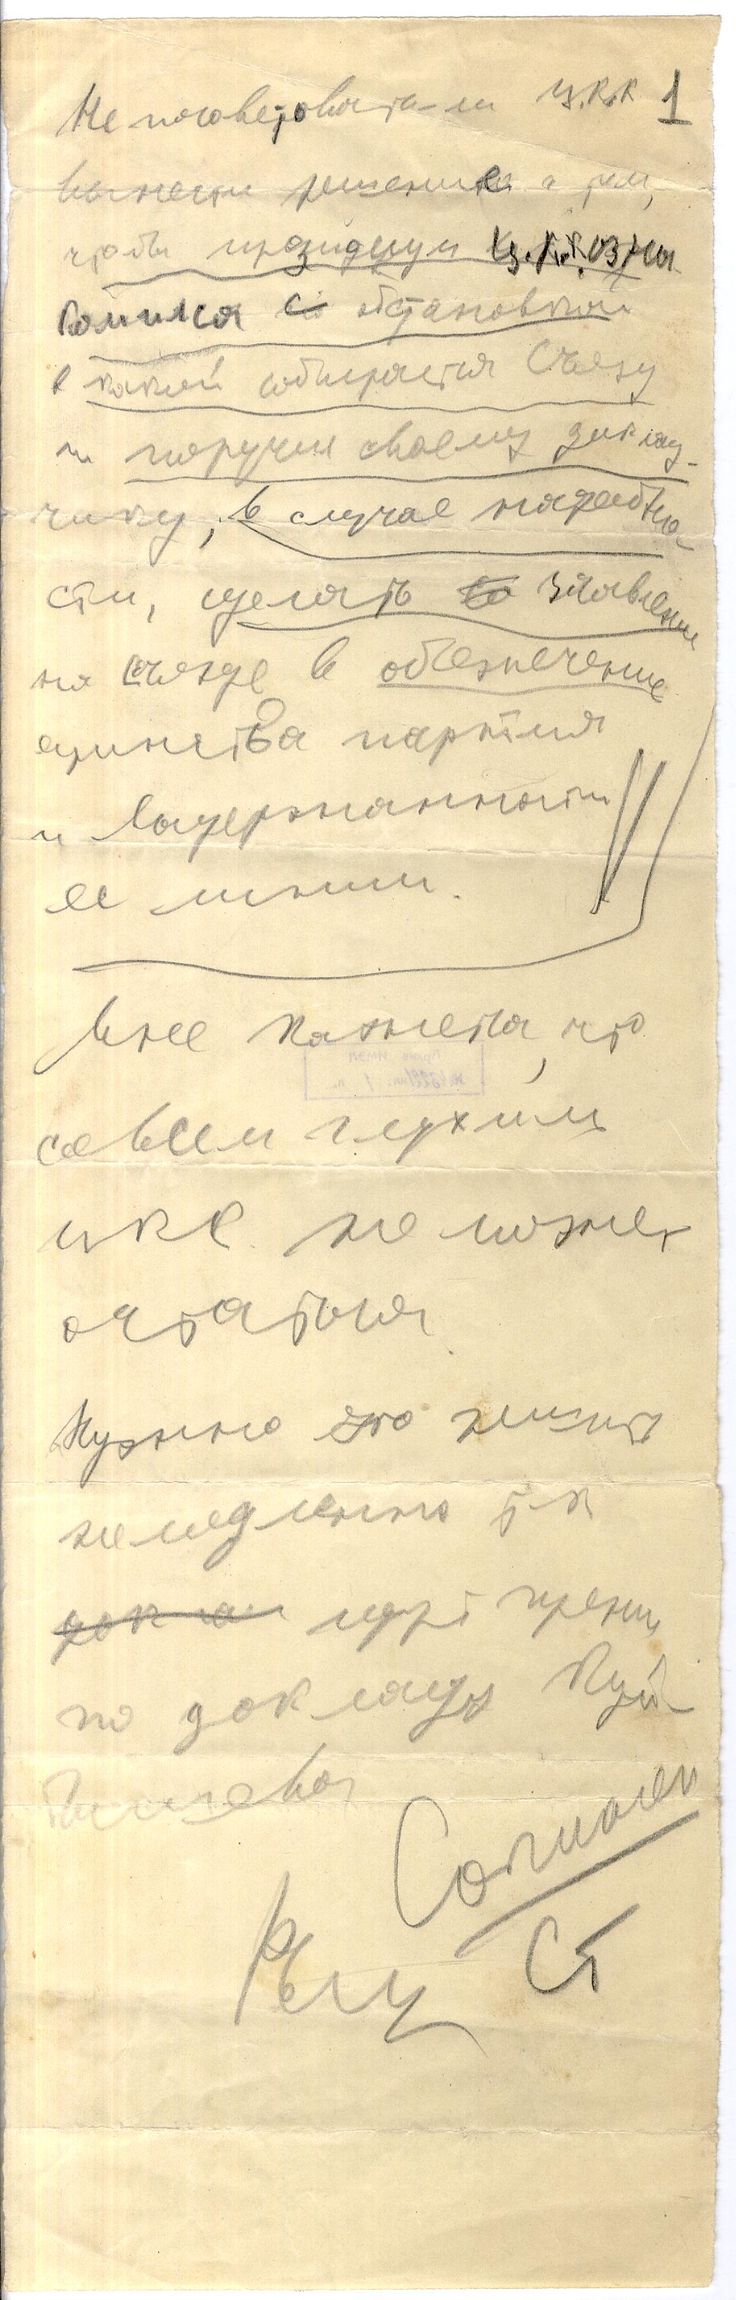 Не посоветовать ли Ц.К.К 1
вынести решение о том,
чтобы президиум Ц.К.К. озна-
комился с обстановкой
в какой собирается съезд
и поручил своему доклад-
чику, в случае надобно-
сти, сделать заявление
на съезде в обеспечение
единства партии
и выдержанности
ее линии.
Мне кажется, что
совсем глухим
ЦКК не может
остаться.
Нужно это решить
немедленно т.к
идут прения
по докладу Куй-
бышева
Согласен
Ст